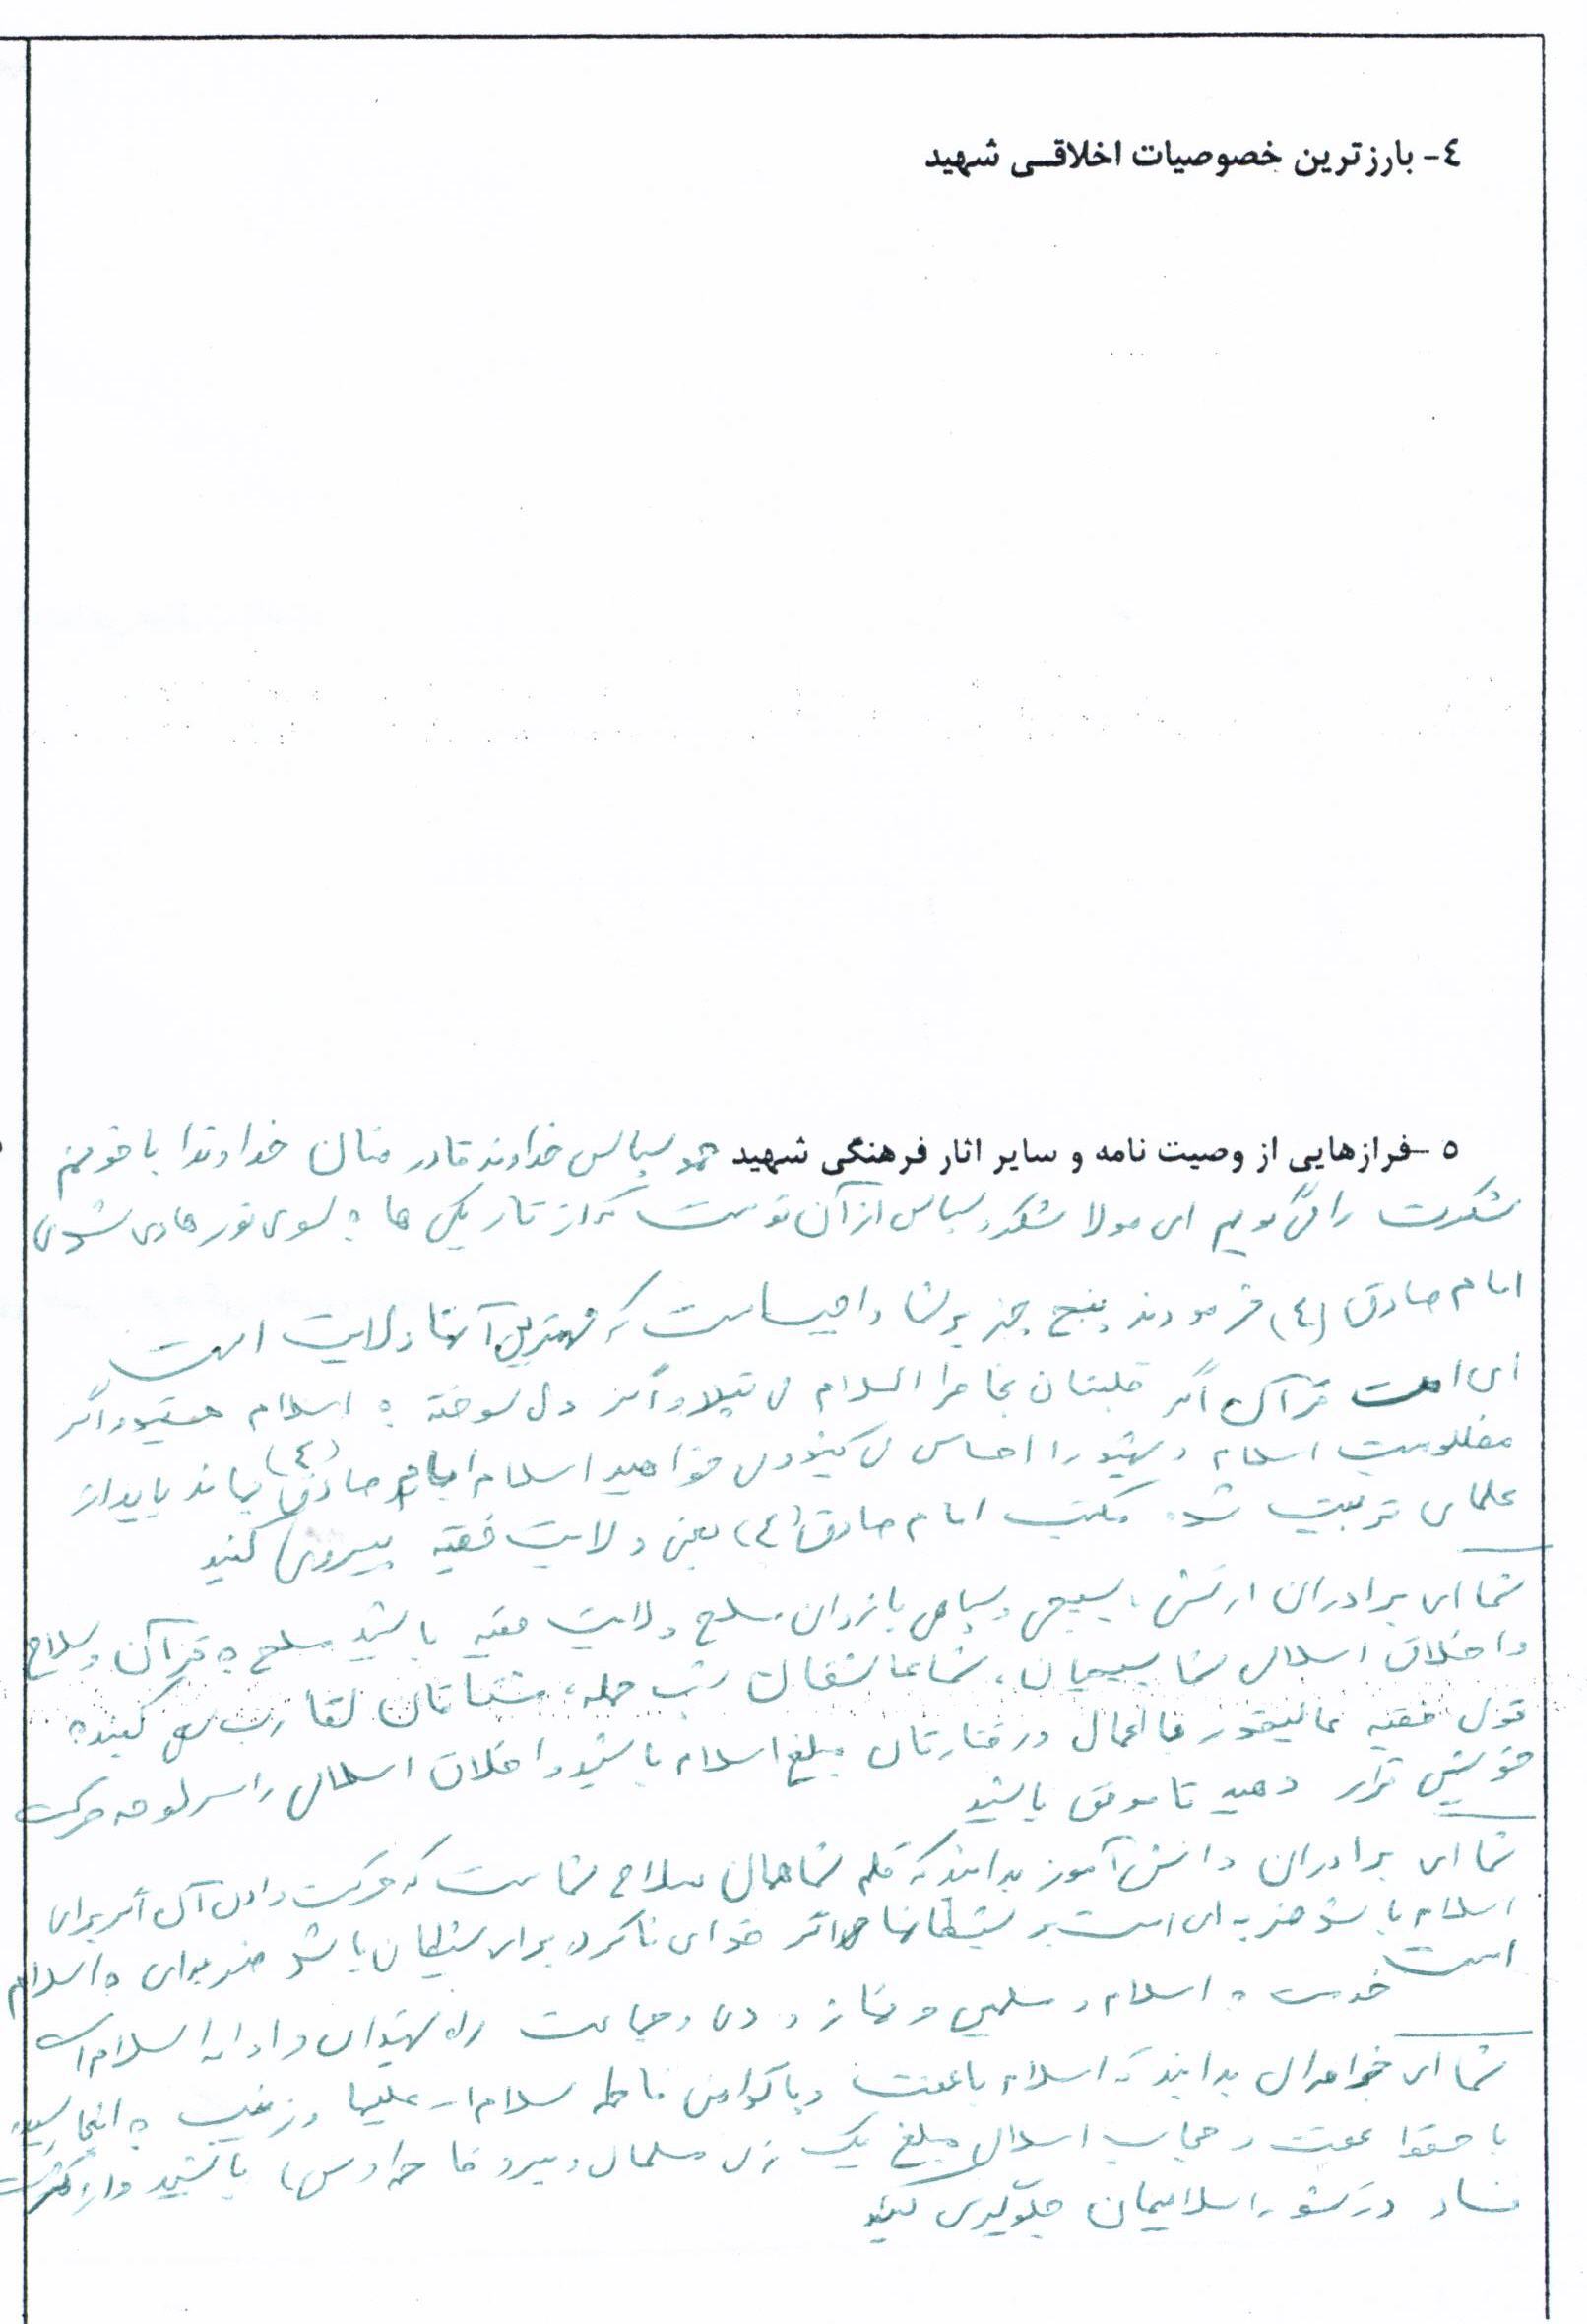 ٤- بارزترین خصوصیات اخلاقی شهید
٥- فرازهایی از وصیت نامه و سایر اثار فرهنگی شهید حمد و سپاس خداوند قادر منان خداوندا با خونم
شکرت را می گویم ای مولا شکر و سپاس از آن توست که از تاریکی ها به سوی نور هادی شدی
امام صادق (ع) فرمودند پنج چیز بر شما واجب است که مهمترین آنها ولایت است
ای امت قرآن اگر قلبتان بخاطر اسلام می تپد و اگر دل سوخته به اسلام هستید و اگر
مظلومیت اسلام و شهید را احساس می کنید و می خواهید اسلام امام صادق (ع) بماند باید از
علمای تربیت شده مکتب امام صادق (ع) یعنی ولایت فقیه پیروی کنید
شما ای برادران ارتش، بسیجی و سپاهی بازوان مسلح ولایت فقیه باشید مسلح به قرآن و سلاح
و اخلاق اسلامی شما بسیجیان، شما عاشقان شب حمله، مشتاقان لقا رب سعی کنید به
قول فقیه عالیقدر با اعمال و رفتارتان مبلغ اسلام باشید و اخلاق اسلامی را سرلوحه حرکت
خویش قرار دهید تا موفق باشید
شما ای برادران دانش آموز بدانید که قلم شما همان سلاح شماست که حرکت دادن آن اگر برای
اسلام باشد ضربه ای است بر شیطانها و اگر خدای ناکرده برای شیطان باشد ضربه ای به اسلام
است
خدمت به اسلام و مسلمین و نماز و دعا و جماعت راه شهیدان و ادامه اسلام است
شما ای خواهران بدانید که اسلام با عفت و پاکدامنی فاطمه سلام ا... علیها و زینب به اینجا رسیده
با حفظ عفت و حجاب اسلامی مبلغ یک زن مسلمان و پیرو فاطمه باشید و از گسترش
فساد در کشور اسلامیمان جلوگیری کنید